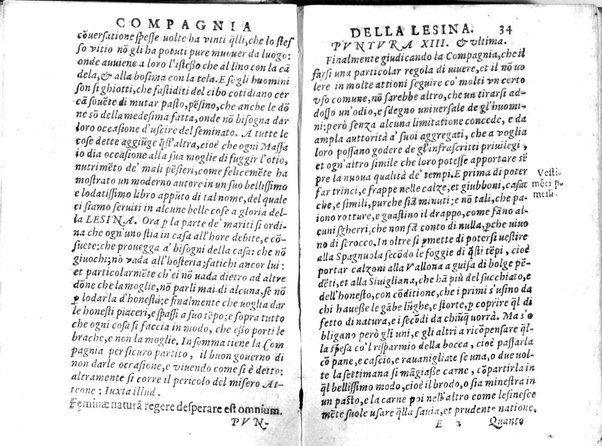 COMPAGNIA
cõuersatione spesse uolte ha vinti q̃lli, che lo stes
so vitio nõ gli ha potuti pure muouer da luogo:
onde auuiene a loro l'istesso che al lino con la cã
dela, & alla bosima con la tela. E se gli huomini
son sì ghiotti, che fastiditi del cibo cotidiano cer
cã souẽte di mutar pasto, pẽsino, che anche le dõ
ne sõ della medesima fatta, onde nõ bisogna dar
loro occasione d'uscire del seminato. A tutte le
cose dette aggiũge q̃st'altra, cioè che ogni Massa
io dia occasione alla sua moglie di fuggir l'otio,
nutrimẽto de' mali pẽsieri, come felicemẽte ha
mostrato un moderno autore in un suo bellissimo
e lodatissimo libro appũto di tal nome, del quale
ci siamo seruiti in alcune belle cose a gloria della
LESINA. Ora p la parte de' mariti si ordi
na che ogni uno stia in casa all'hore debite, e cõ-
suete; che prouegga a' bisogni della casa: che nõ
giuochi; nõ uada all'hosteria; satichi ancor lui:
et particolarmẽte ch'ei nõ uada dietro ad altre
dõne che la moglie, nõ parli mai di alcuna, se nõ
p lodarla d'honestà: e finalmente che uoglia dar
le honesti piaceri, espassi a suo tẽpo; e sopra tutto
che ogni cosa si faccia in modo, che esso porti le
brache, e non la moglie. In somma tiene la Com
pagnia per sicuro partito, il buon gouerno di
non darle occasione, e viuendo come si è detto:
altramente si corre il pericolo del misero At-
teone: Iuxta illud.
Feminæ naturã regere desperare est omnium.
PVN-
DELLA LESINA. 34
PVNTVRA XIII. & vltima.
Finalmente giudicando la Compagnia, che il
farsi una particolar regola di uiuere, et il nõ uo
lere in molte attioni seguire co' molti un certo
uso comune, nõ sarebbe altro, che un tirarsi ad-
dosso un'odio, e sdegno uniuersale de gl'huomi-
ni; però senza alcuna limitatione concede, e da
ampla auttorità a' suoi aggregati, che a voglia
loro possano godere de gl'infrascritti priuilegi,
et ogn'altro simile che loro potesse apportare sẽ
pre la nuoua qualità de' tempi. E prima di poter
far trinci, e frappe nelle calze, et giubboni, casac
che, e simili, purche siã minuti; e nõ tali, che pa-
iono rotture, e guastino il drappo, come fãno al-
cuni sgherri, che non fã conto di nulla, pche uiuo
no di scrocco. In oltre si pmette di potersi uestire
alla Spagnuola secõdo le foggie di q̃sti tẽpi, cioè
portar calzoni alla Vallona a guisa di bolge pẽ-
dẽti, et alla Siuigliana, che hà più del succhiato, e
dell'honesto, con cõditione, che i primi s'usino da
chi hauesse le gãbe lũghe, e storte, p coprire q̃l di
fetto di natura, e i secõdi da chiũq̃ uorrà. Ma s'o
bligano però gli uni, e gli altri a ricõpensare q̃l
la spesa co'l risparmio della bocca, cioè passarla
cõ pane, e cascio, e rauanigliate se una, o due uol-
te la settimana si mãgiasse carne, cõpartirla in
q̃l bellissimo modo, cioè il brodo, o sia minestra in
un pasto, e la carne poi nell'altro come lesinesca
mẽte suole usare q̃lla sauia, et prudente natione,
E 2 Quanto
Vesti-
mẽti p-
messi.